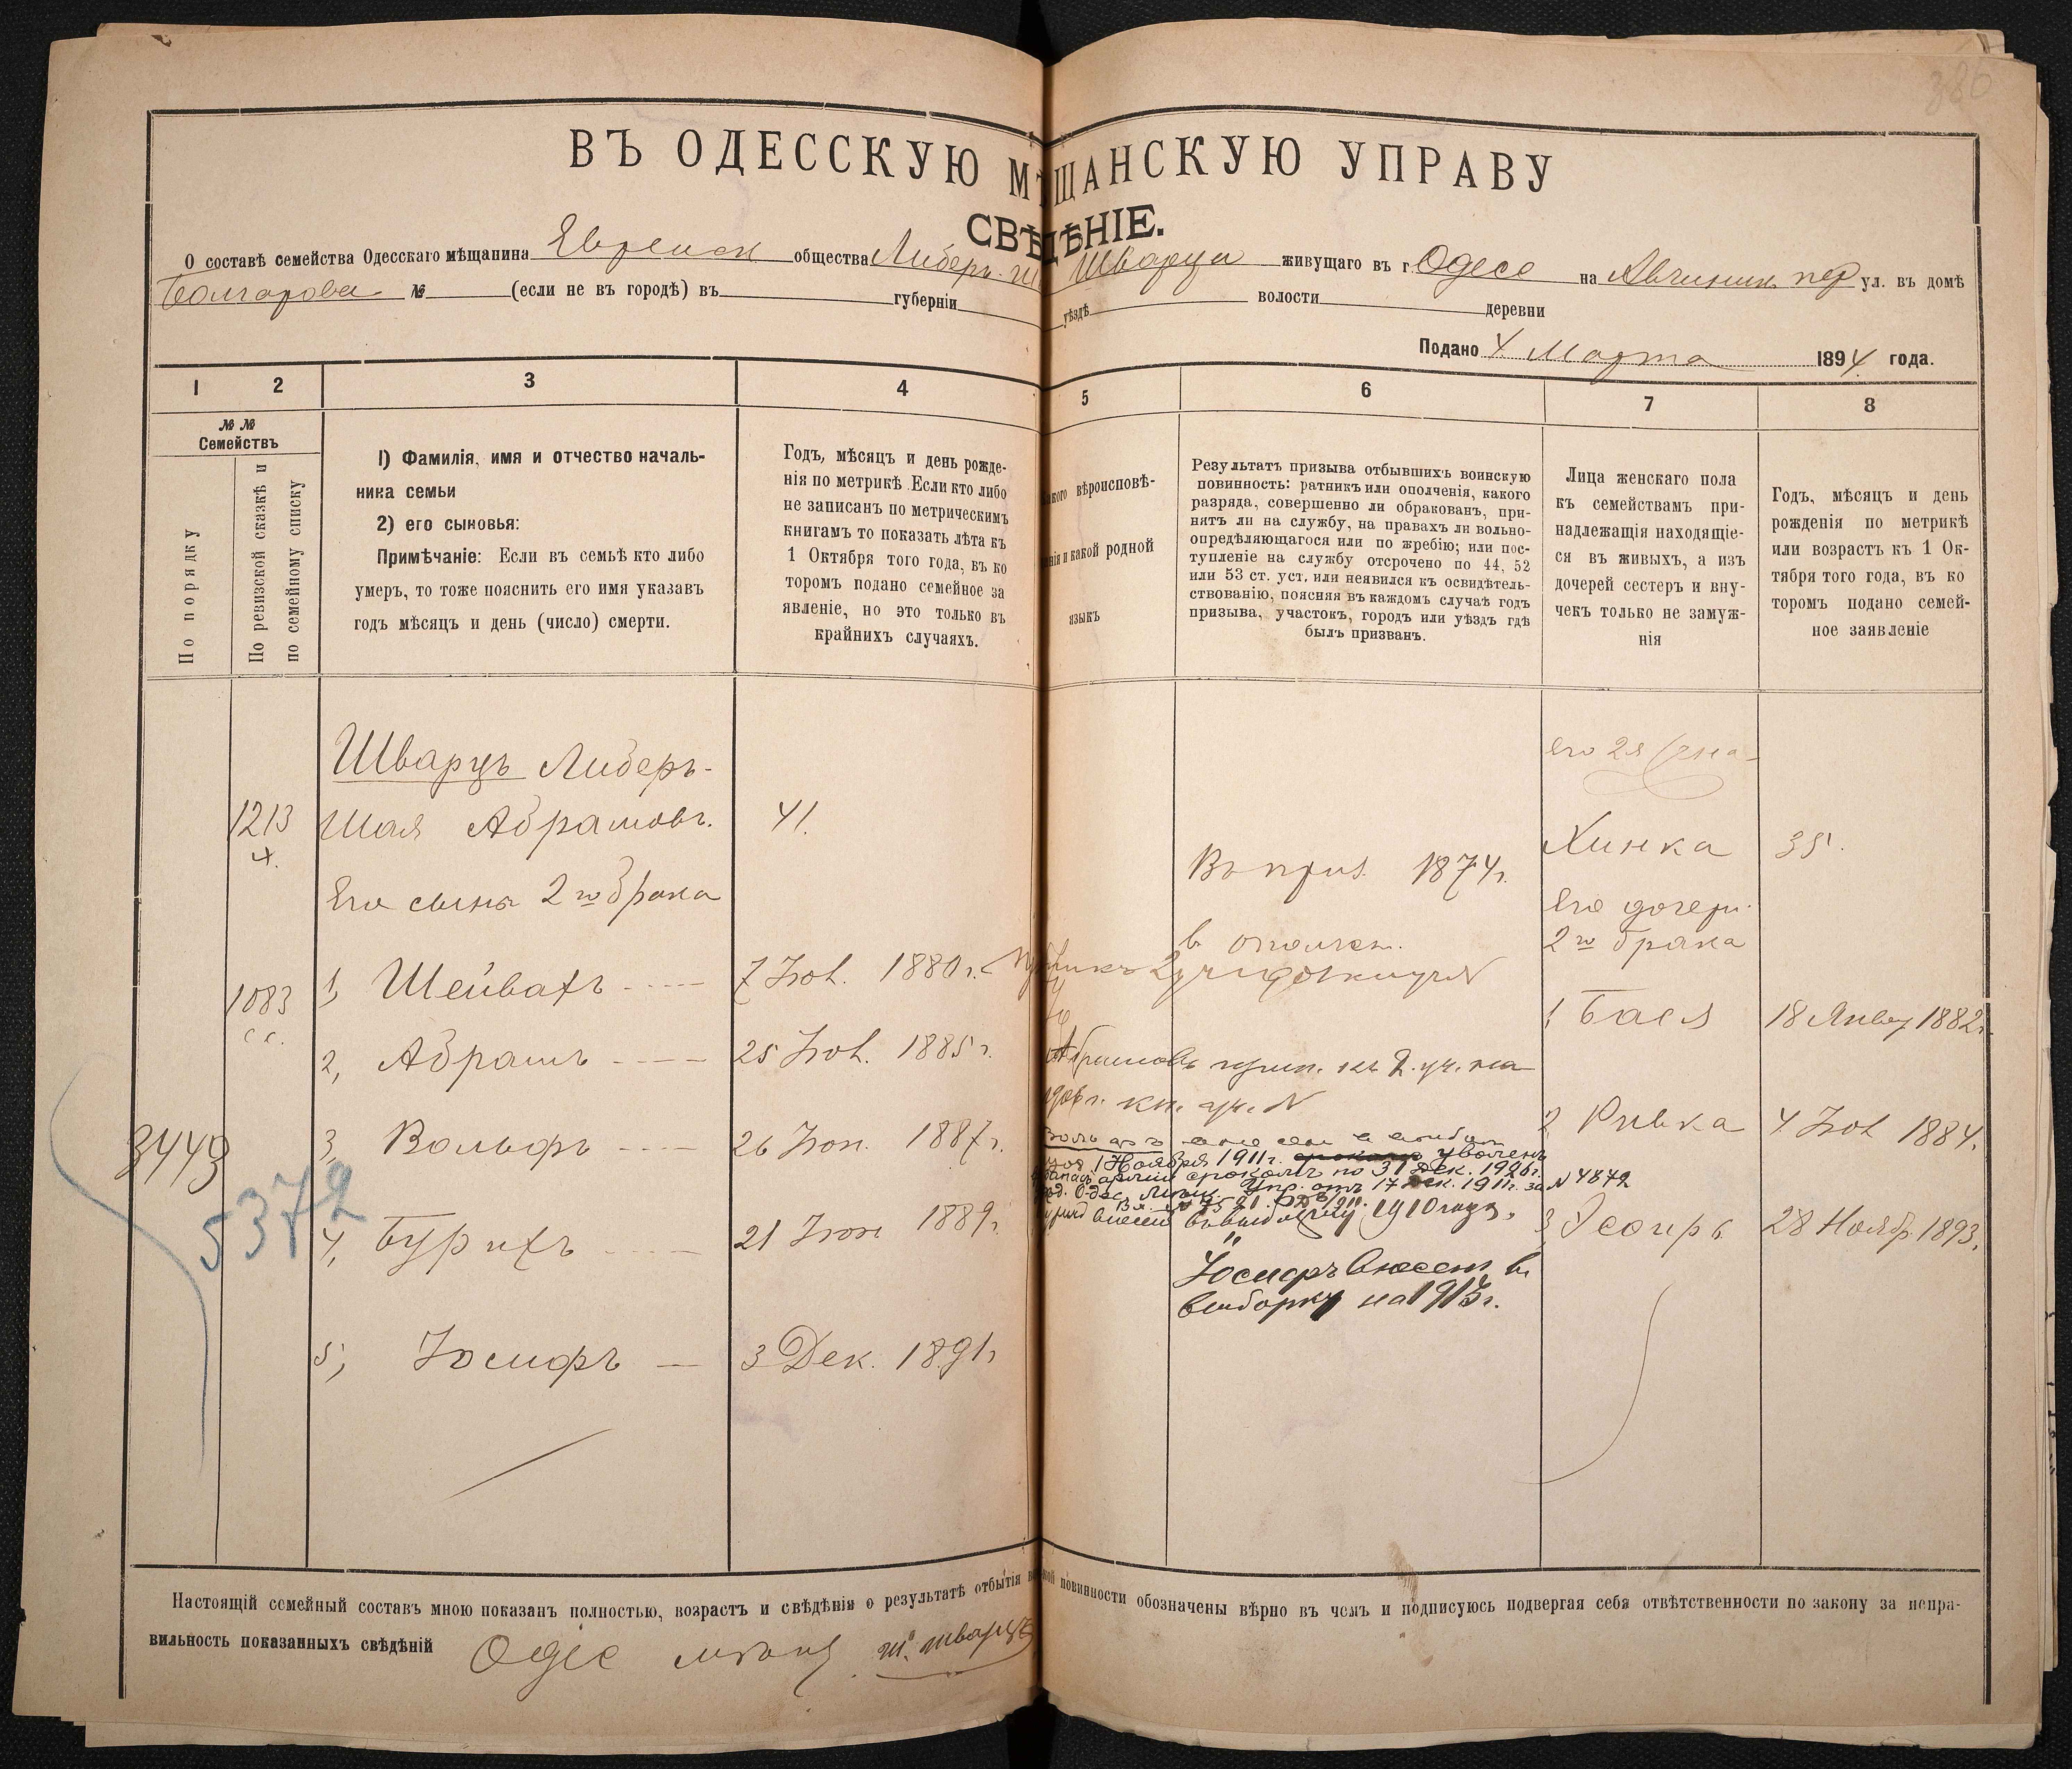 380
ВЪ ОДЕССКУЮ МѢЩАНСКУЮ УПРАВУ
СВѢДѢНІЕ.
О составѣ семейства Одесскаго мѣщанина Еврейск общества Либеръ-Ш Шварца живущаго въ г. Одесе на Авчинник пер ул. въ домѣ
Болгарова № (если не въ городѣ) въ губерніи уѣздѣ волости деревни
Подано 4 Марта 1894 года.
1 2 3 4 5 6 7 8
№ № Семействъ
По порядку
По ревизской сказкѣ и
по семейному списку
1) Фамилія, имя и отчество началь-
ника семьи
2) его сыновья:
Примѣчаніе: Если въ семьѣ кто либо
умеръ, то тоже пояснить его имя указавъ
годъ мѣсяцъ и день (число) смерти.
Годъ, мѣсяцъ и день рожде-
нія по метрикѣ. Если кто либо
не записанъ по метрическимъ
книгамъ то показать лѣта къ
1 Октября того года, въ ко
торомъ подано семейное за
явленіе, но это только въ
крайнихъ случаяхъ.
вѣроисповѣ-
и какой родной
языкъ
Результатъ призыва отбывшихъ воинскую
повинность: ратникъ или ополченія, какого
разряда, совершенно ли обракованъ, при-
нятъ ли на службу, на правахъ ли вольно-
опредѣляющагося или по жребію; или пос-
тупленіе на службу отсрочено по 44, 52
или 53 ст. уст. или неявился къ освидѣтель-
ствованію, поясняя въ каждомъ случаѣ годъ
призыва, участокъ, городъ или уѣздъ гдѣ
былъ призванъ.
Лица женскаго пола
къ семействамъ при-
надлежащія находящіе-
ся въ живыхъ, а изъ
дочерей сестеръ и вну-
чекъ только не замуж-
нія
Годъ, мѣсяцъ и день
рожденія по метрикѣ
или возрастъ къ 1 Ок-
тября того года, въ ко
торомъ подано семей-
ное заявленіе
Шварцъ Либеръ-
его 2я жена
1213 Шая Абрамовъ. 41.
Хинка 35.
Въ приз. 1874 г.
Его сыны 2го брака
Его дочери
в ополчен.
2го брака
1083 1, Шейвахъ 7 Нов. 1880 г.
1, Бася 18 Январ 1882 г.
2, Абрамъ 25 Нов. 1885 г.
Абрамовъ 2. уч. на
2, Ривка 4 Нов 1884 г.
3449 3, Вольфъ 26 Іюн. 1887 г.
1 Ноября 1911 г. уволенъ
арміи срокомъ по 31 Дек. 1926 г.
Одес. Упр. отъ 17 Дек. 1911 г. за № 4872
5372
4, Бурихъ 21 Іюн 1889 г.
внесен в выборку 1910 года.
3 Эсѳирь 28 Нояб. 1893 г.
Іосифъ внесен в
выборку на 1913 г.
5, Іосифъ 3 Дек. 1891 г
Настоящій семейный составъ мною показанъ полностью, возрастъ и свѣдѣнія о результатѣ отбытія повинности обозначены вѣрно въ чемъ и подписуюсь подвергая себя отвѣтственности по закону за непра-
вильность показанныхъ свѣдѣній Одес мѣщан Ш. Шварцъ